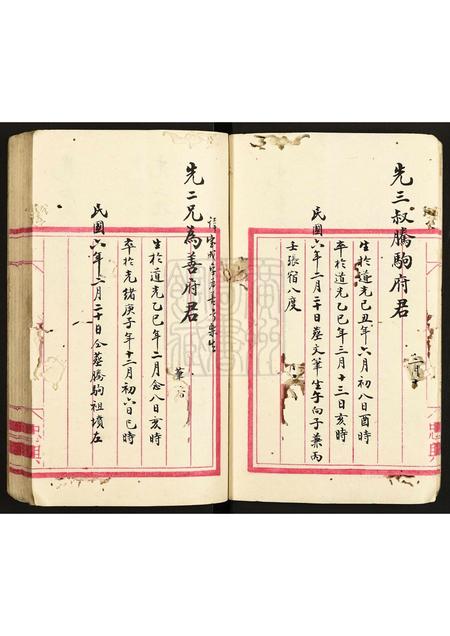 先三叔騰駒府君
生於道光己丑年六月初八日酉時
卒於道光乙巳年三月十三日亥時
民國六年二月二十日葬文筆生午向子兼丙
壬張宿八度
忠興
先二兄為善府君
生於道光乙巳年二月念八日亥時
卒於光緒庚子年十二月初六日巳時
民國六年二月二十日合葬騰駒祖墳左
忠興